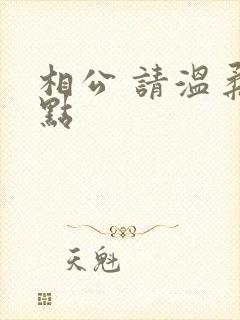 相公 請溫柔
點
天魁